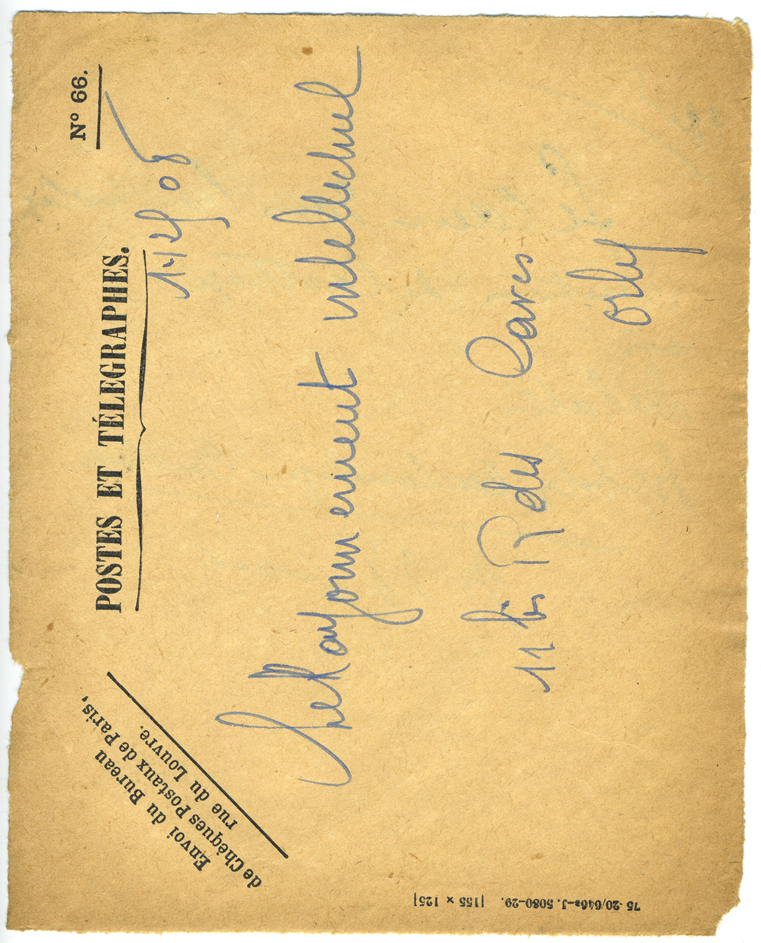 Envoi du Bureau
de Chèques Postaux de Paris,
rue du Louvre.
POSTES ET TÉLÉGRAPHES.
N° 66.
Le Rayonnement intellectuel
11 bis R des Caves
Orly
75-20/646a-J. 5080-29. [155 × 125]